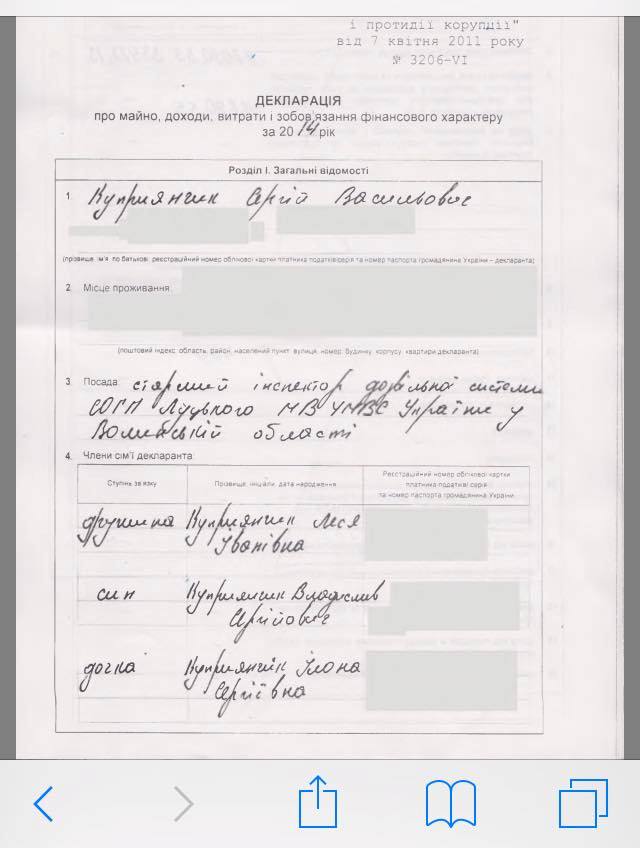 і протидії корупції"
від 7 квітня 2011 року
№ 3206-VI
ДЕКЛАРАЦІЯ
про майно, доходи, витрати і зобов'язання фінансового характеру
за 2014 рік
Розділ І. Загальні відомості
1. Куприянчик Сергій Васильович
(прізвище, ім'я, по батькові, реєстраційний номер облікової картки платника податків/серія та номер паспорта громадянина України – декларанта)
2. Місце проживання:
(поштовий індекс, область, район, населений пункт, вулиця, номер: будинку, корпусу, квартири декларанта)
3. Посада: старший інспектор дозвільної системи
СОГП Луцького МВ УМВС України у
Волинській області
4. Члени сім'ї декларанта:
Ступінь зв'язку
Прізвище, ініціали, дата народження
Реєстраційний номер облікової картки
платника податків/ серія
та номер паспорта громадянина України
дружина Куприянчик Леся
Іванівна
син Куприянчик Владислав
Сергійович
дочка Куприянчик Ілона
Сергіївна